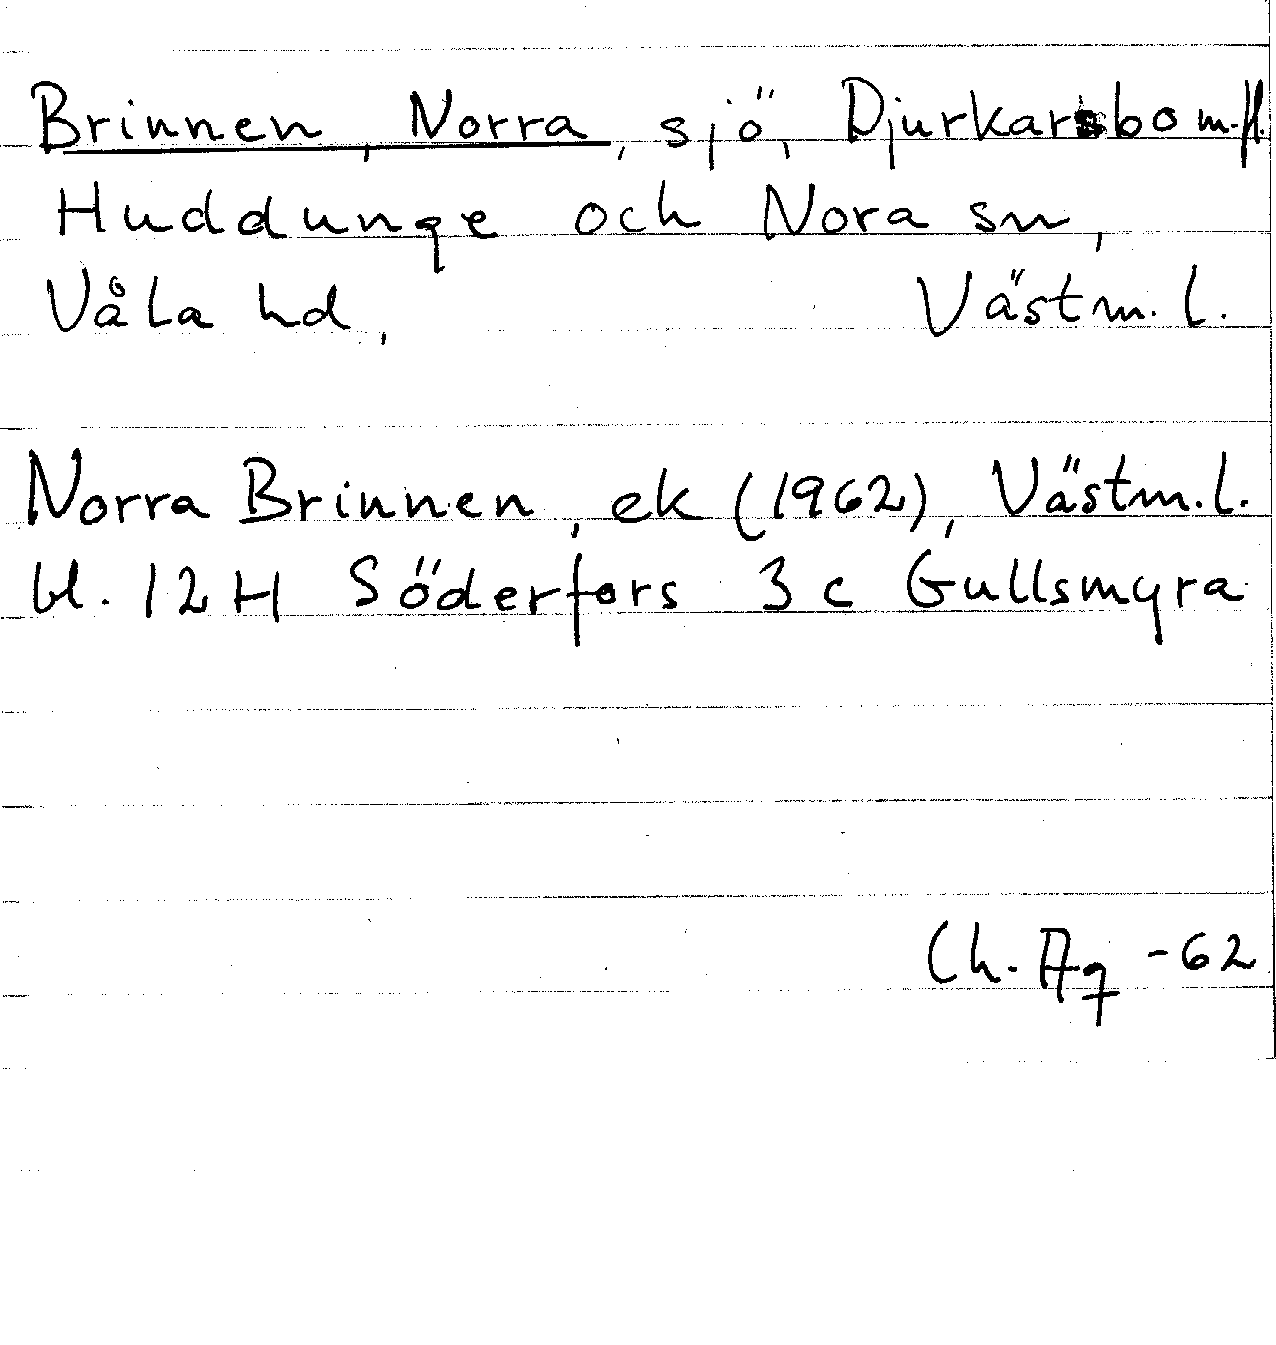 Brinnen, Norra, sjö, Djurkarsbo m.fl.
Huddunge och Nora sn,
Våla hd, Västm. l.
Norra Brinnen, ek (1962), Västm. l.
bl. 12H Söderfors 3 c Gullsmyra
Ch. Ag -62